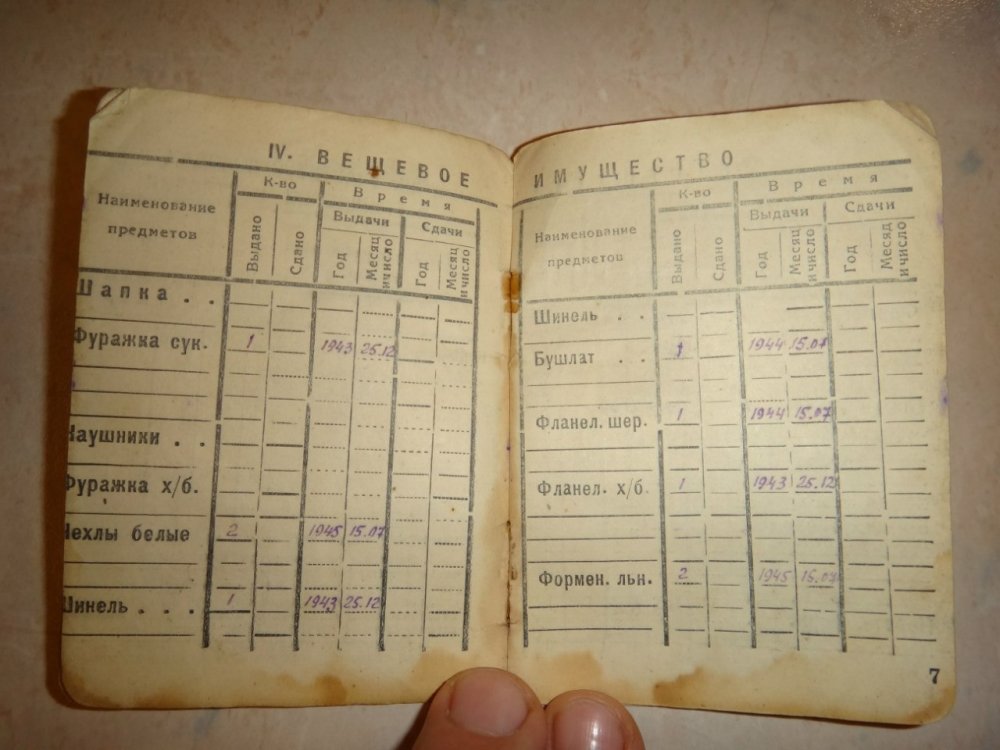 IV. ВЕЩЕВОЕ
Наименование предметов К-во Время
Выдано Сдано Выдачи Сдачи
Год Месяц и число Год Месяц и число
Шапка . .
Фуражка сук. 1 1943 25.12
Наушники . .
Фуражка х/б.
Чехлы белые 2 1945 15.07
Шинель . . . 1 1943 25.12
ИМУЩЕСТВО
Наименование предметов К-во Время
Выдано Сдано Выдачи Сдачи
Год Месяц и число Год Месяц и число
Шинель . .
Бушлат . . 1 1944 15.07
Фланел. шер. 1 1944 15.07
Фланел. х/б 1 1943 25.12
Формен. льн. 2 1945 15.07
7